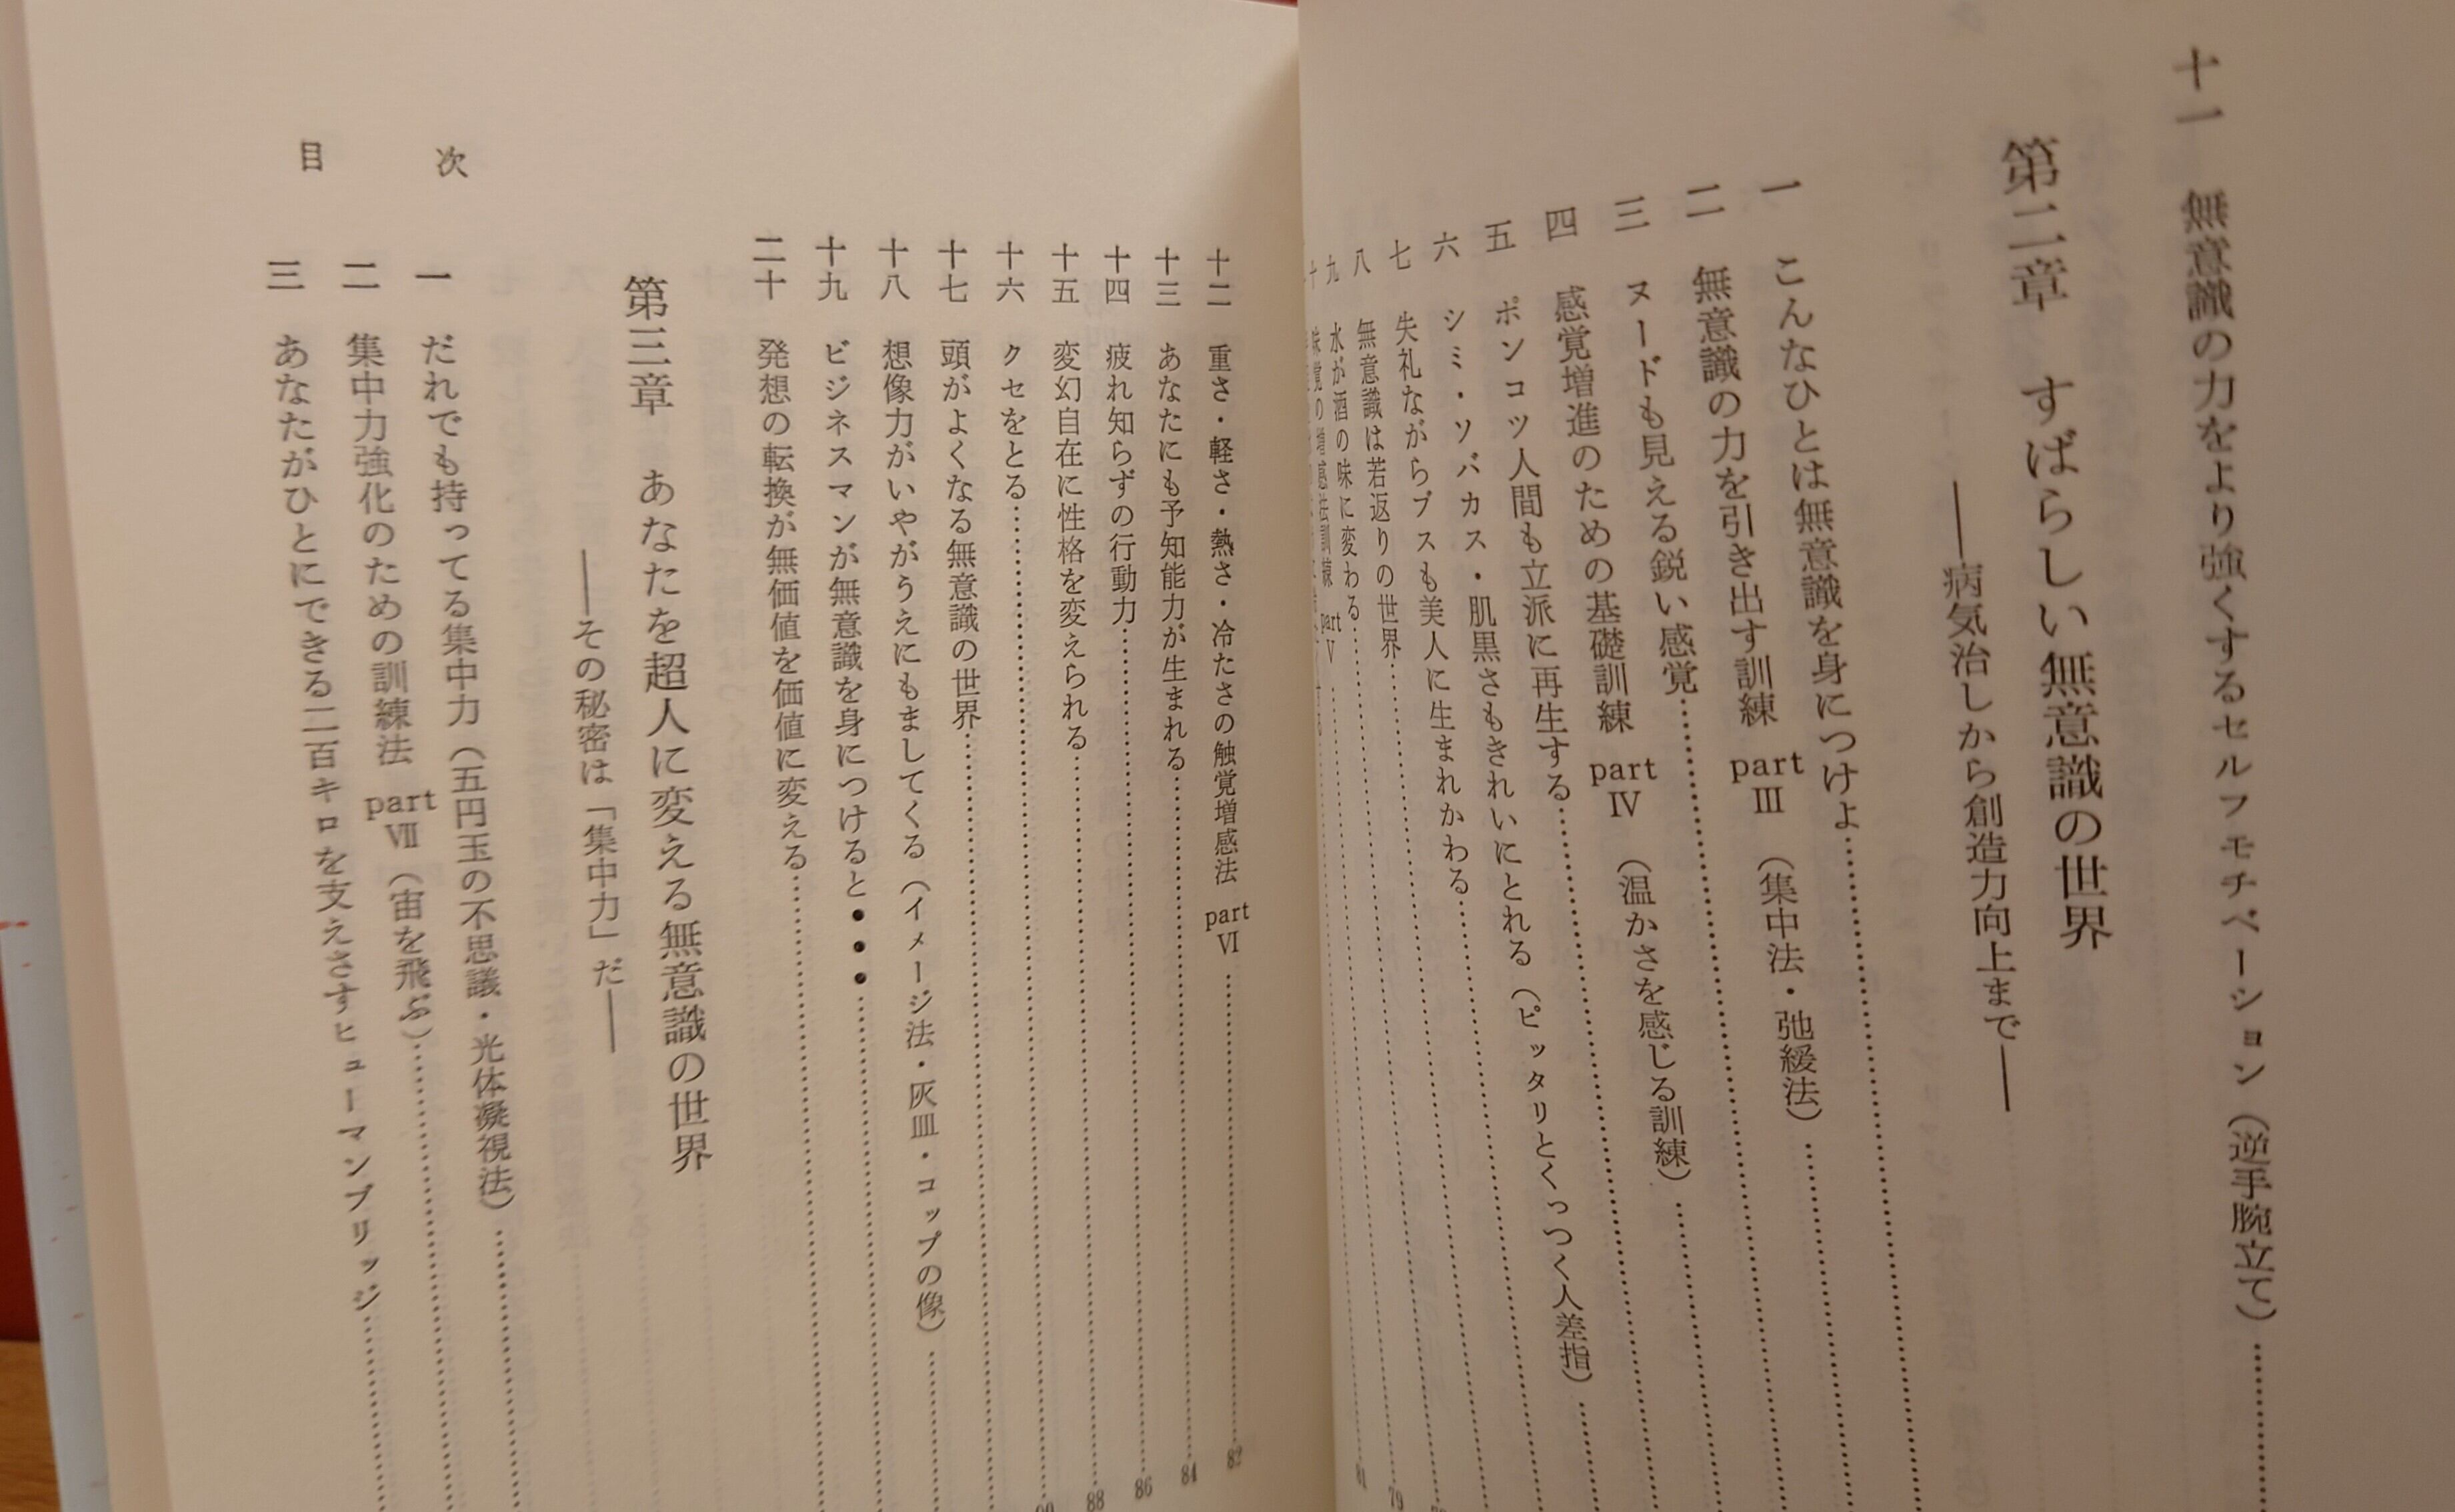 十一 無意識の力をより強くするセルフモチベーション（逆手腕立て）
第二章 すばらしい無意識の世界
――病気治しから創造力向上まで――
一 こんなひとは無意識を身につけよ
二 無意識の力を引き出す訓練 part Ⅲ （集中法・弛緩法）
三 ヌードも見える鋭い感覚
四 感覚増進のための基礎訓練 part Ⅳ （温かさを感じる訓練）
五 ポンコツ人間も立派に再生する
六 シミ・ソバカス・肌黒さもきれいにとれる（ピッタリとくっつく人差指）
七 失礼ながらブスも美人に生まれかわる
八 無意識は若返りの世界 79
九 水が酒の味に変わる 81
十 味覚の増感法訓練 part Ⅴ
十二 重さ・軽さ・熱さ・冷たさの触覚増感法 part Ⅵ 82
十三 あなたにも予知能力が生まれる 84
十四 疲れ知らずの行動力 86
十五 変幻自在に性格を変えられる 88
十六 クセをとる 90
十七 頭がよくなる無意識の世界
十八 想像力がいやがうえにもましてくる（イメージ法・灰皿・コップの像）
十九 ビジネスマンが無意識を身につけると・・・
二十 発想の転換が無価値を価値に変える
第三章 あなたを超人に変える無意識の世界
――その秘密は「集中力」だ――
一 だれでも持ってる集中力（五円玉の不思議・光体凝視法）
二 集中力強化のための訓練法 part Ⅶ（宙を飛ぶ）
三 あなたがひとにできる二百キロを支えさすヒューマンブリッジ
目次